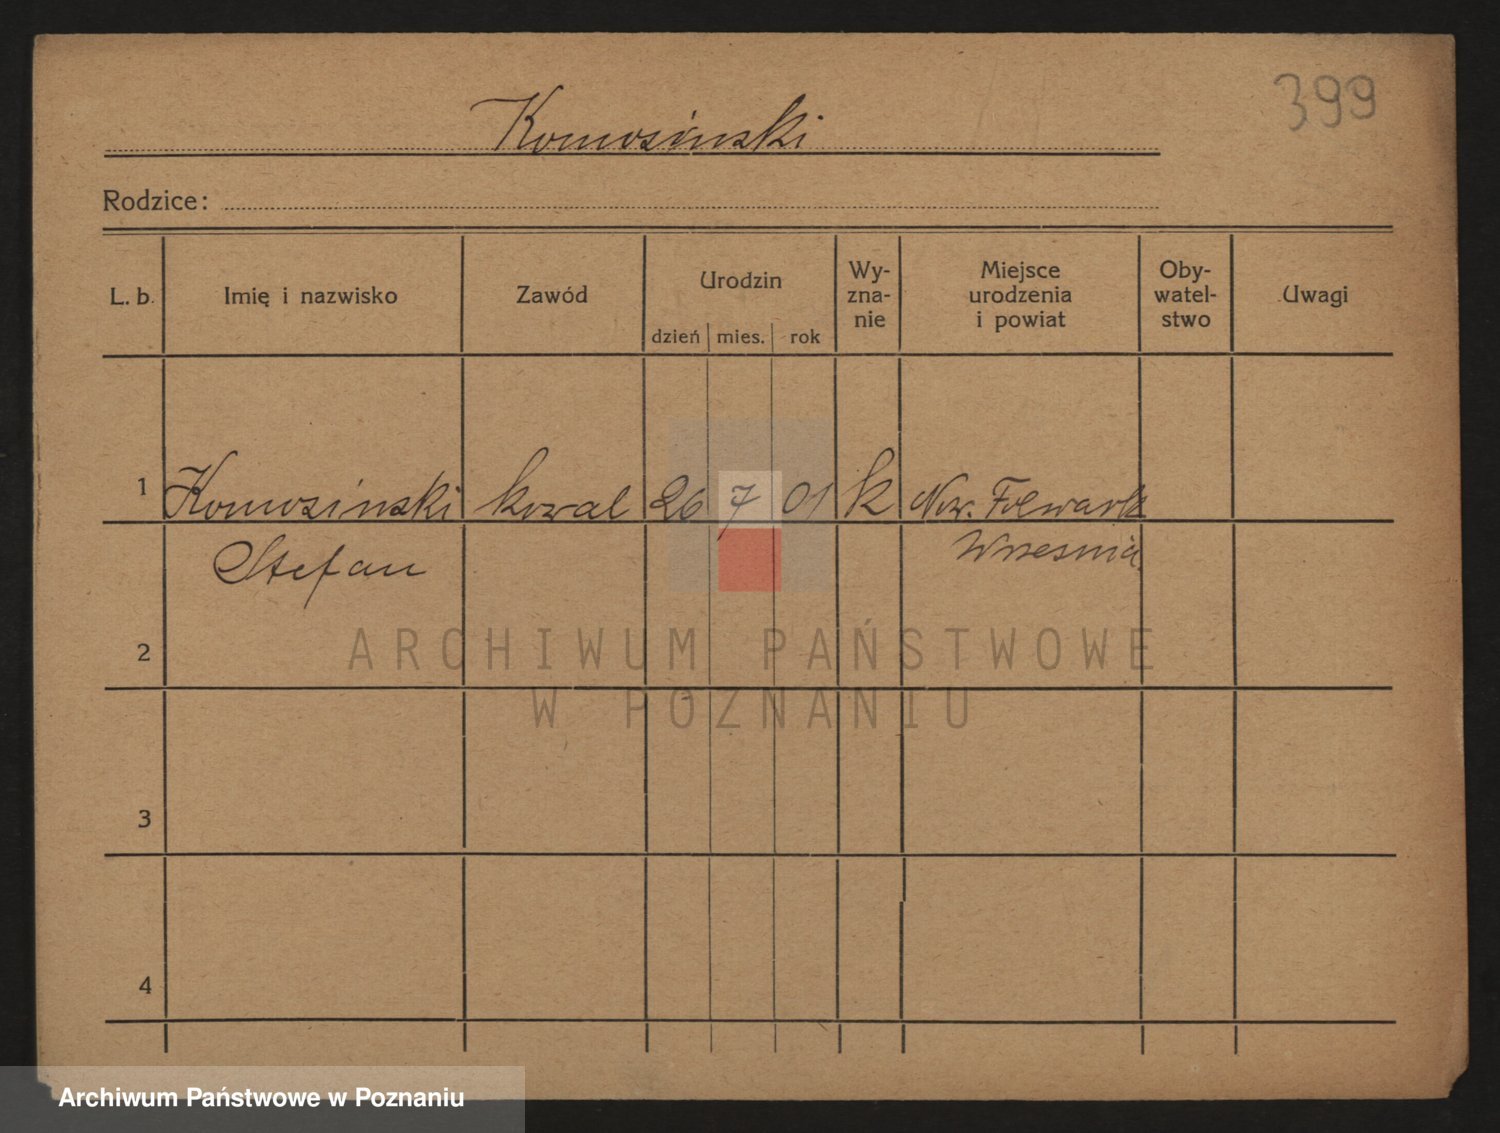 399
Komosinski
Rodzice:
L. b.
Imię i nazwisko
Zawód
Urodzin
dzień mies. rok
Wy-
zna-
nie
Miejsce
urodzenia
i powiat
Oby-
watel-
stwo
Uwagi
1 Komosinski kowal 26 7 01 k Now. Folwark
Stefan Wrzesnia
2
3
4
ARCHIWUM PAŃSTWOWE
W POZNANIU
Archiwum Państwowe w Poznaniu